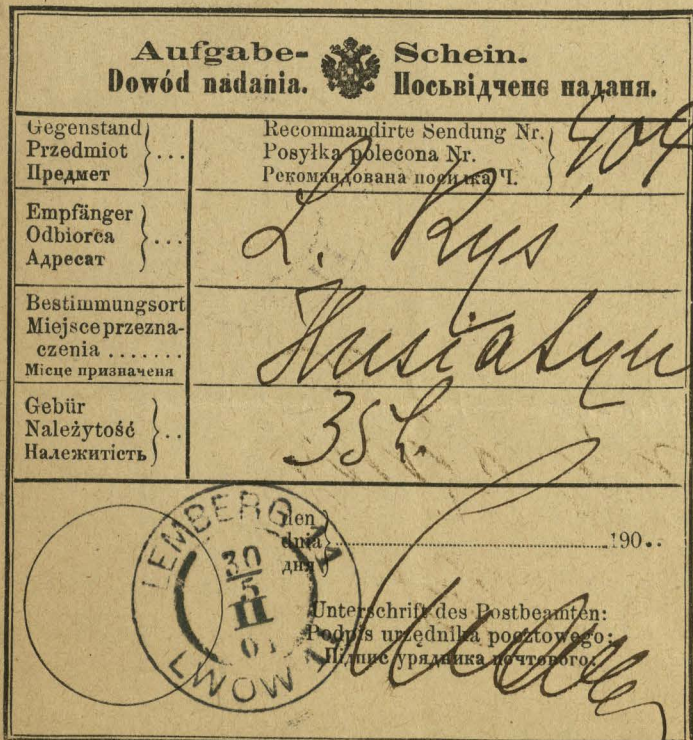 Aufgabe- Schein.
Dowód nadania. Посьвідченє наданя.
Gegenstand
Przedmiot ...
Предмет
Recommandirte Sendung Nr.
Posyłka polecona Nr.
Рекомандована посилка Ч.
404
Empfänger
Odbiorca ...
Адресат
L. Ryś
Bestimmungsort
Miejsce przezna-
czenia .......
Місце призначеня
Husiatyn
Gebür
Należytość ..
Належитість
35 h.
LEMBERG
30
5
II
LWOW
den
dnia ... 190..
дня
Unterschrift des Postbeamten:
Podpis urzędnika pocztowego:
Підпис урядника почтового: